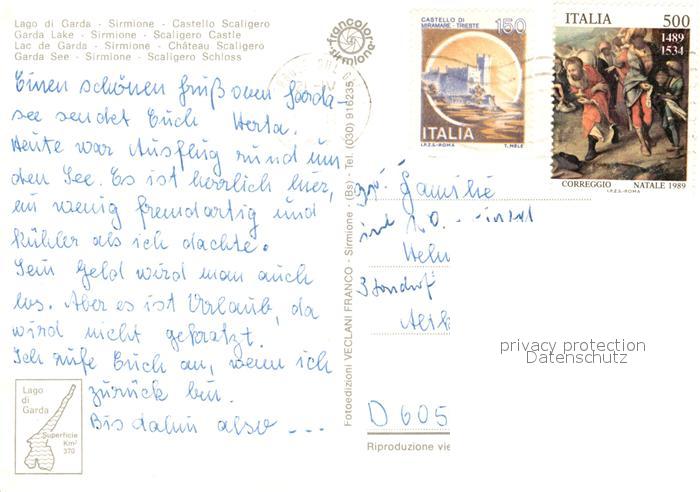 Lago di Garda - Sirmione - Castello Scaligero
Garda Lake - Sirmione - Scaligero Castle
Lac de Garda - Sirmione - Château Scaligero
Garda See - Sirmione - Scaligero Schloss
Einen schönen Gruß vom Garda-
see sendet Euch Herta.
Heute war Ausflug rund um
den See. Es ist herrlich hier,
ein wenig fremdartig und
kühler als ich dachte.
Sein Geld wird man auch
los. Aber es ist Urlaub, da
wird nicht gekratzt.
Ich rufe Euch an, wenn ich
zurück bin.
Bis dahin also ---
Lago
di
Garda
Superficie
Km²
370
fancolor
sirmione
Fotoedizioni VECLANI FRANCO - Sirmione - (Bs) - Tel. (030) 916235
CASTELLO DI
MIRAMARE - TRIESTE
150
ITALIA
I.P.Z.S.-ROMA
T. MELE
ITALIA 500
1489
1534
CORREGGIO NATALE 1989
I.P.Z.S.-ROMA
Familie
D 605
Riproduzione vie
privacy protection
Datenschutz